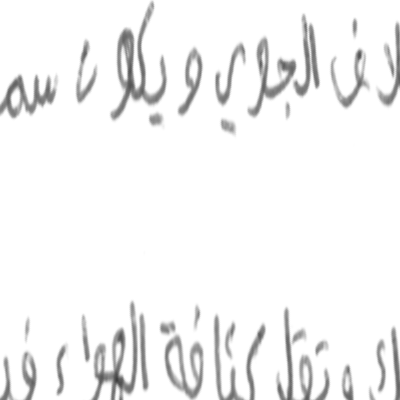 لاف الجوي ويكون سم
ك وتقل كثافة الهواء في